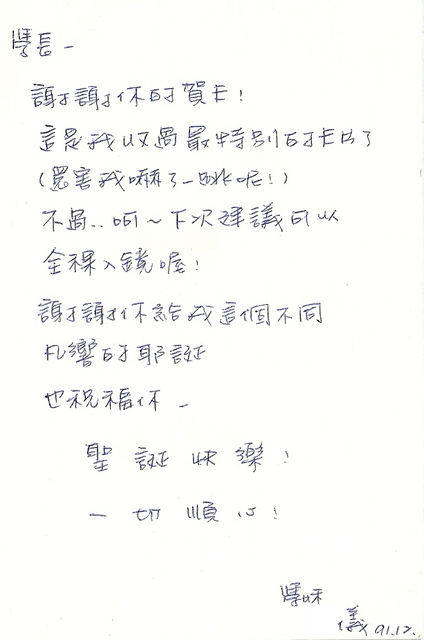 學長－
謝謝你的賀卡！
這是我收過最特別的卡片了
（還害我嚇了一跳呢！）
不過..呵～下次建議可以
全裸入鏡喔！
謝謝你給我這個不同
凡響的耶誕
也祝福你－
聖誕快樂！
一切順心！
學妹
儀 91.12.